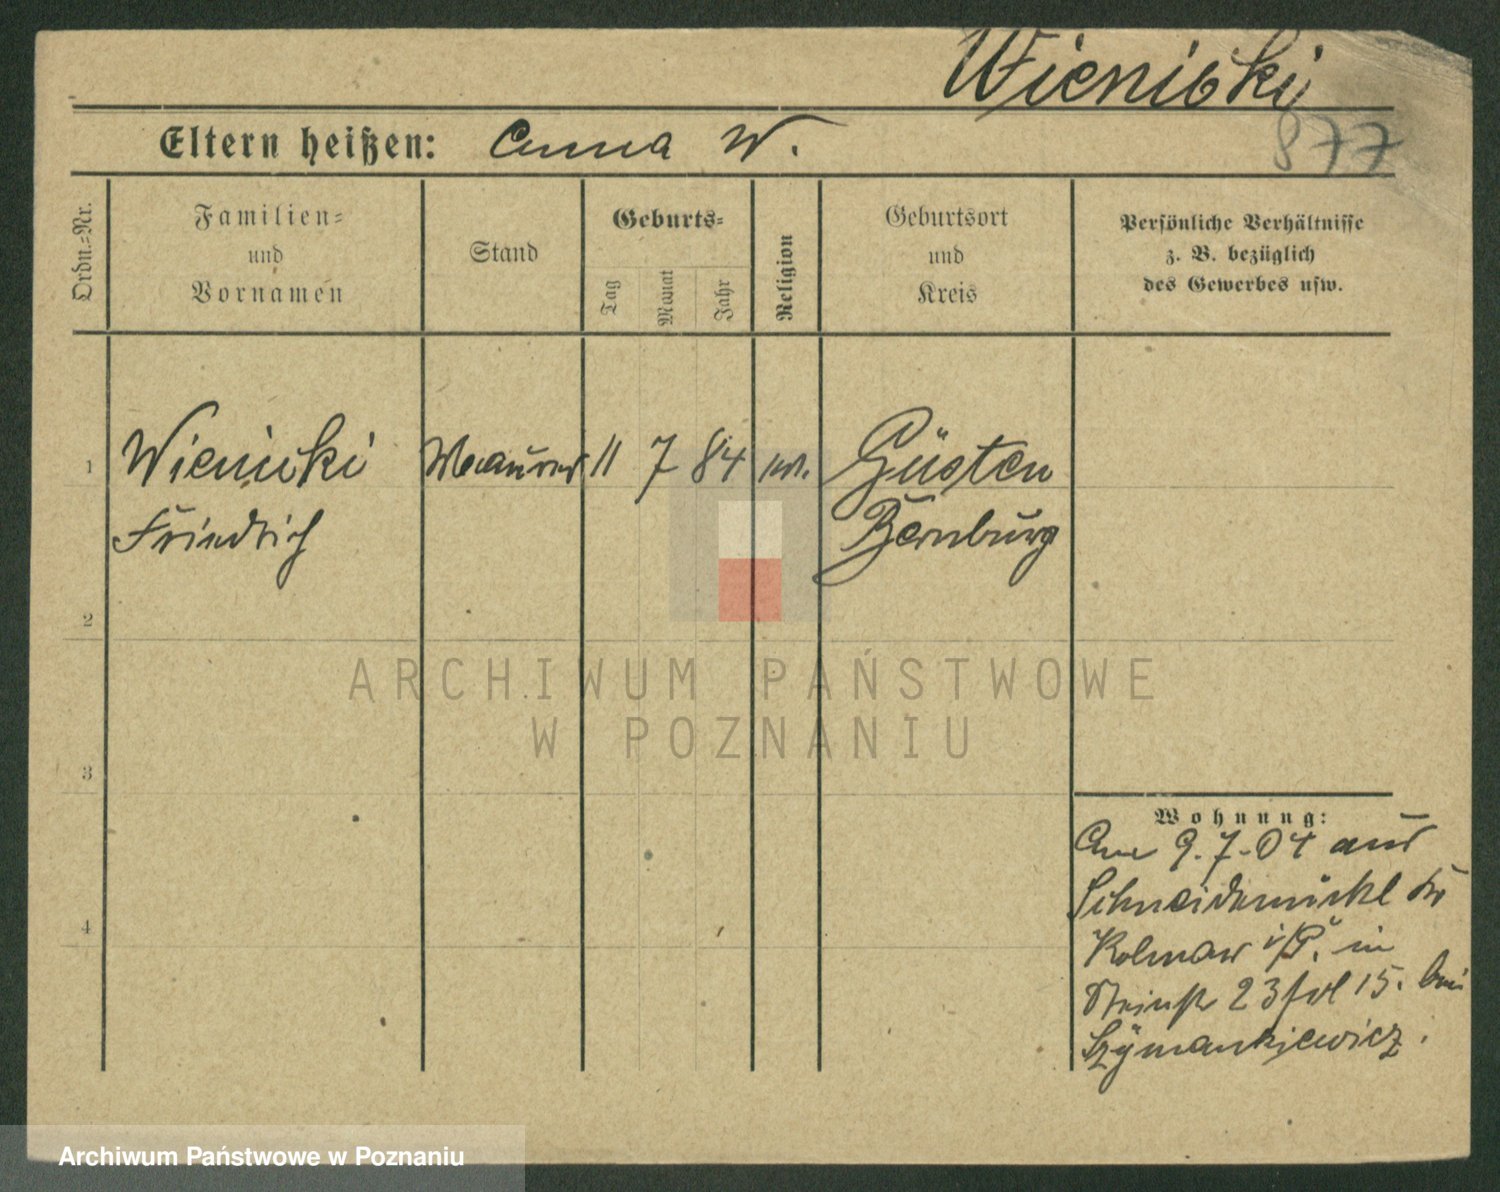 Wieniski
877
Eltern heißen: Anna W.
Ordn.=Nr.
Familien=
und
Vornamen
Stand
Geburts=
Tag
Monat
Jahr
Religion
Geburtsort
und
Kreis
Persönliche Verhältnisse
z. B. bezüglich
des Gewerbes usw.
1
Wieniski
Friedrich
Maurer
11
7
84
Güsten
Bernburg
2
3
4
ARCHIWUM PAŃSTWOWE
W POZNANIU
Wohnung:
Am 9.7.04 aus
Schneidemühl Kr
Kolmar i/P. in
23 15. bei
Szymankiewicz.
Archiwum Państwowe w Poznaniu